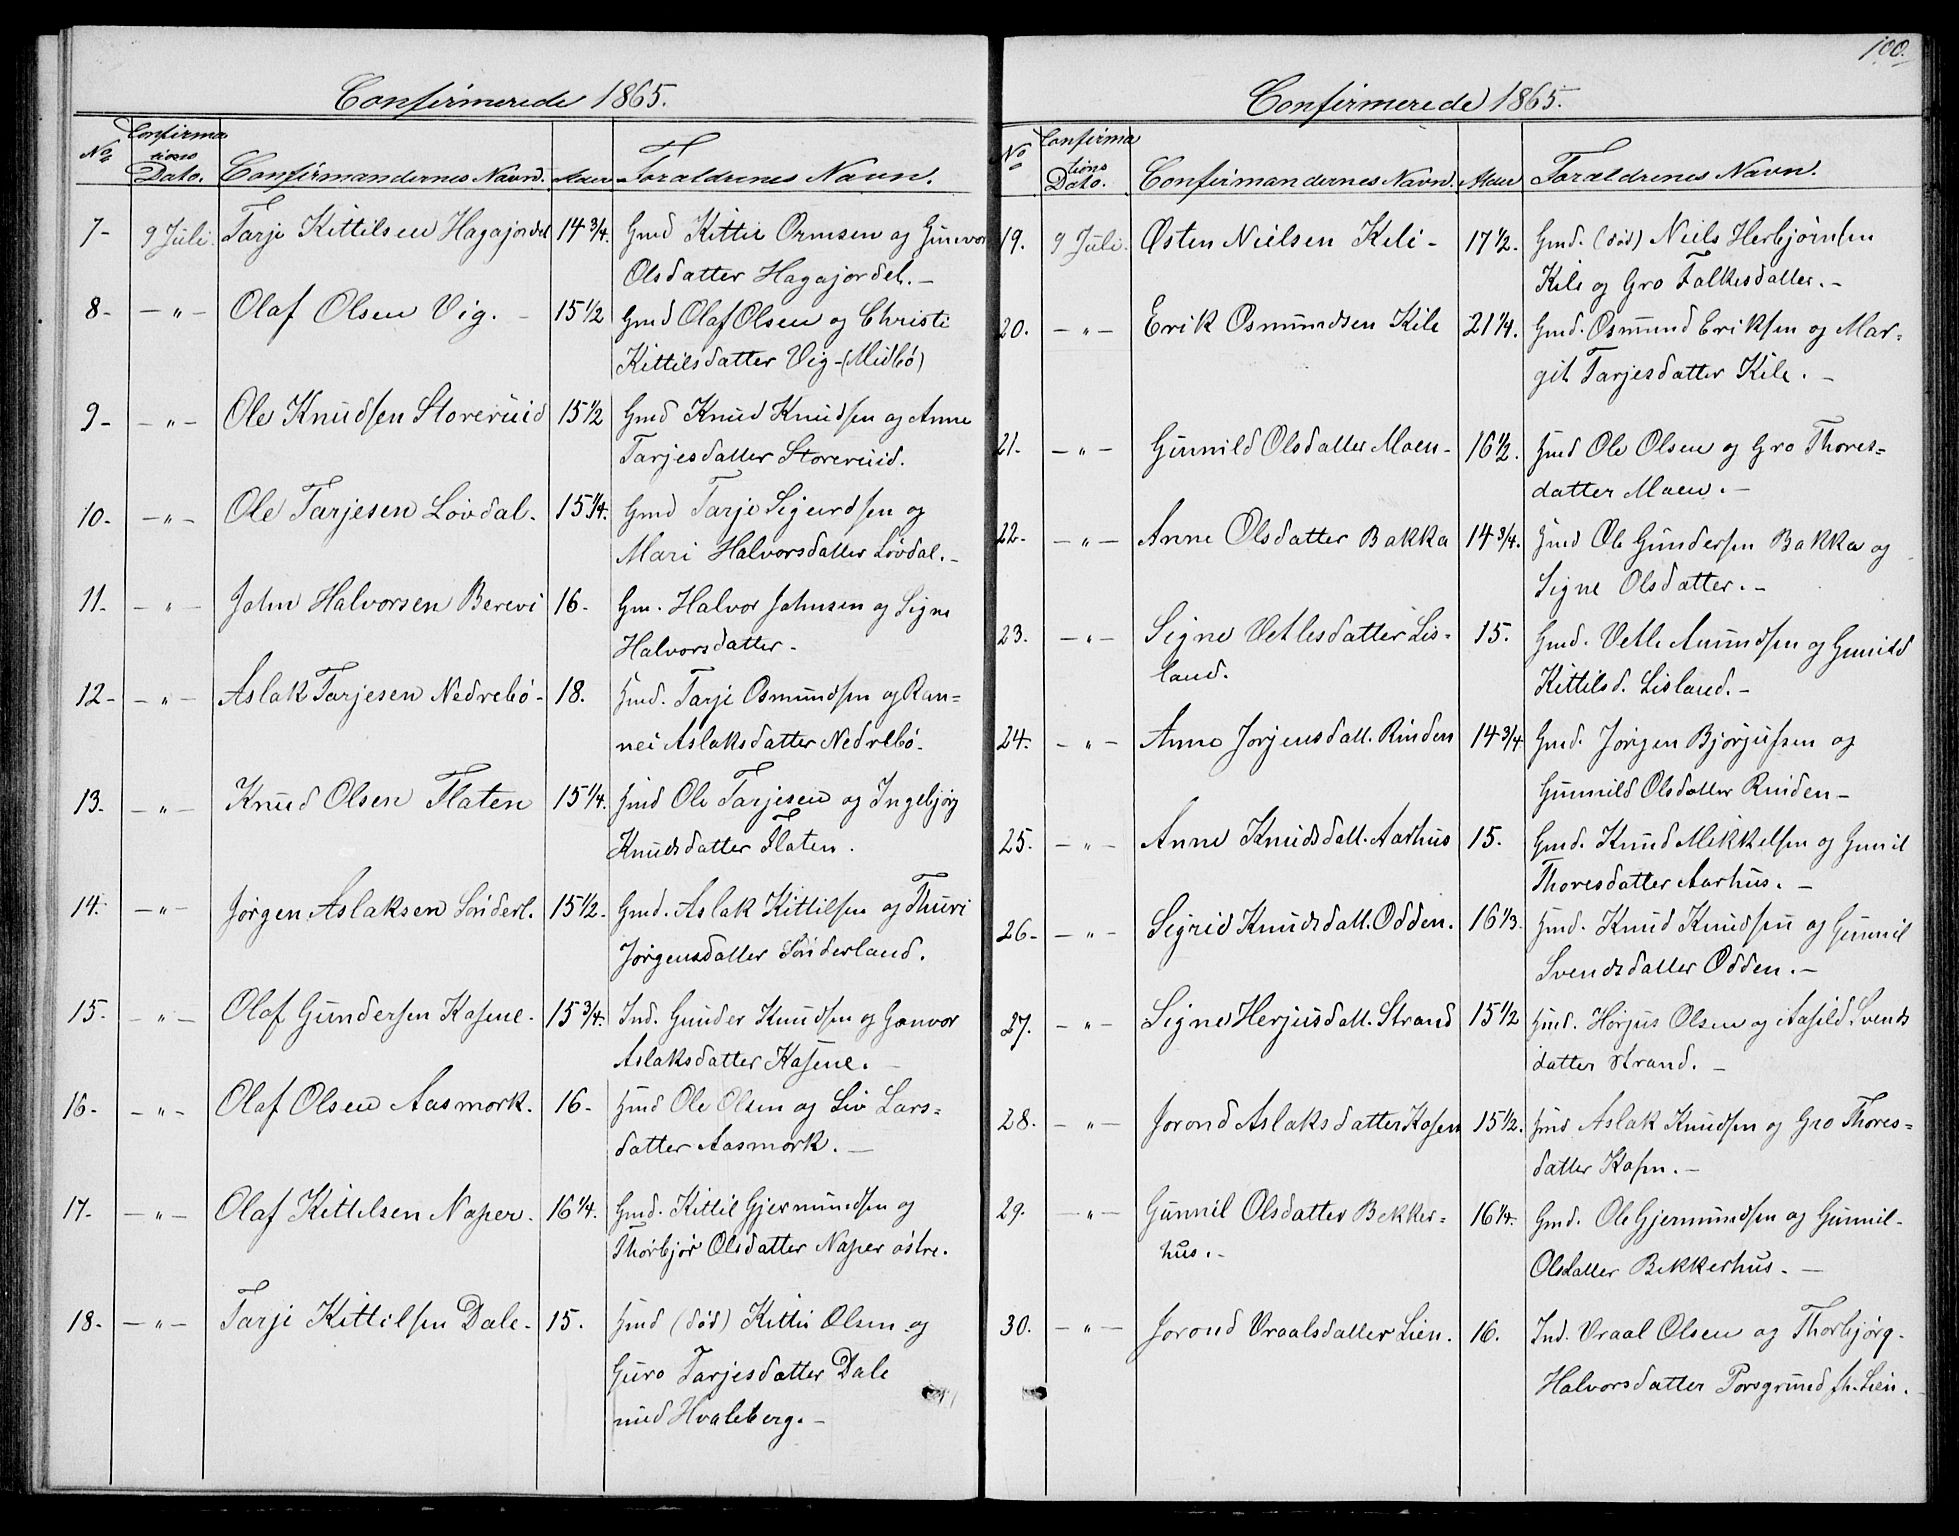 Confirmerede 1865.
No Confirmations Dato. Confirmandernes Navn. Alder Forældrenes Navn.
7- 9 Juli. Tarje Kittilsen Hagajordet 14 3/4. Gmd Kittil Ormsen og Gunvor
Olsdatter Hagajordet. –
8- –„– Olaf Olsen Vig. – 15 1/2 Gmd Olaf Olsen og Christi
Kittilsdatter Vig – (Midbö)
9- –„– Ole Knudsen Storeruid 15 1/2 Gmd Knud Knudsen og Anne
Tarjesdatter Storeruid.
10- –„– Ole Tarjesen Lövdal. 15 1/4. Gmd Tarje Sigurdsen og
Mari Halvorsdatter Lövdal. –
11- –„– John Halvorsen Berevi 16- Gm. Halvor Johnsen og Signe
Halvorsdatter –
12- –„– Aslak Tarjesen Nedrebö – 18. Hmd. Tarje Osmundsen og Ran=
nei Aslaksdatter Nedrebö.
13. –„– Knud Olsen Flaten 15 1/4. Hmd Ole Tarjesen og Ingebjörg
Knudsdatter Flaten.
14. –„– Jörgen Aslaksen Sönderl. 15 1/2. Gmd. Aslak Kittilsen og Thuri
Jörgensdatter Sönderland.
15. –„– Olaf Gundersen Kasene. 15 3/4. Ind. Gunder Knudsen og Gunvor
Aslaksdatter Kasene. –
16- –„– Olaf Olsen Aasmork. 16- Hmd Ole Olsen og Liv Lars=
datter Aasmork. –
17. –„– Olaf Kittilsen Naper. 16 1/4. Gmd. Kittil Gjermundsen og
Thorbjör Olsdatter Naper östre.
18. –„– Tarje Kittilsen Dale. 15. Hmd (död) Kittil Olsen og
Guro Tarjesdatter Dale
Hvaleberg. –
100.
Confirmerede 1865.
No Confirmations Dato. Confirmandernes Navn. Alder Forældrenes Navn.
19. 9 Juli. Østen Nielsen Kili – 17 1/2. Gmd. (död) Niels Herbjörnsen
Kile og Gro Falkesdatter. –
20. –„– Erik Osmundsen Kile 21 1/4. Gmd. Osmund Eriksen og Mar=
git Tarjesdatter Kile. –
21. –„– Gunnild Olsdatter Moen – 16 1/2. Hmd Ole Olsen og Gro Thores=
datter Moen. –
22. –„– Anne Olsdatter Bakka 14 3/4. Hmd Ole Gundersen Bakka og
Signe Olsdatter. –
23. –„– Signe Vetlesdatter Lis= 15. Gmd. Vetle Aanundsen og Gunild
land. Kittilsd. Lisland. –
24. –„– Anne Jörjensdatt. Rinden 14 3/4 Gmd. Jörgen Bjorjusen og
Gunnild Olsdatter Rinden –
25. –„– Anne Knudsdatt. Aarhus 15. Gmd. Knud Mikkelsen og Gunil
Thoresdatter Aarhus. –
26- –„– Sigrid Knudsdatt. Odden. 16 1/3. Hmd. Knud Knudsen og Gunnil
Svendsdatter Odden. –
27. –„– Signe Herjusdatt. Strand 15 1/2 Hmd. Hörjus Olsen og Aasild Svends
datter Strand. –
28. –„– Jorond Aslaksdatter Kosen 15 1/2. Hmd Aslak Knudsen og Gro Thores=
datter Kosen. –
29. –„– Gunnil Olsdatter Bekker= 16 1/4. Gmd. Ole Gjermundsen og Gunnil –
hus. – Olsdatter Bekkerhus. –
30. –„– Jorond Vraalsdatter Lien. 16. Ind. Vraal Olsen og Thorbjörg
Halvorsdatter Porsgrund Lien. –